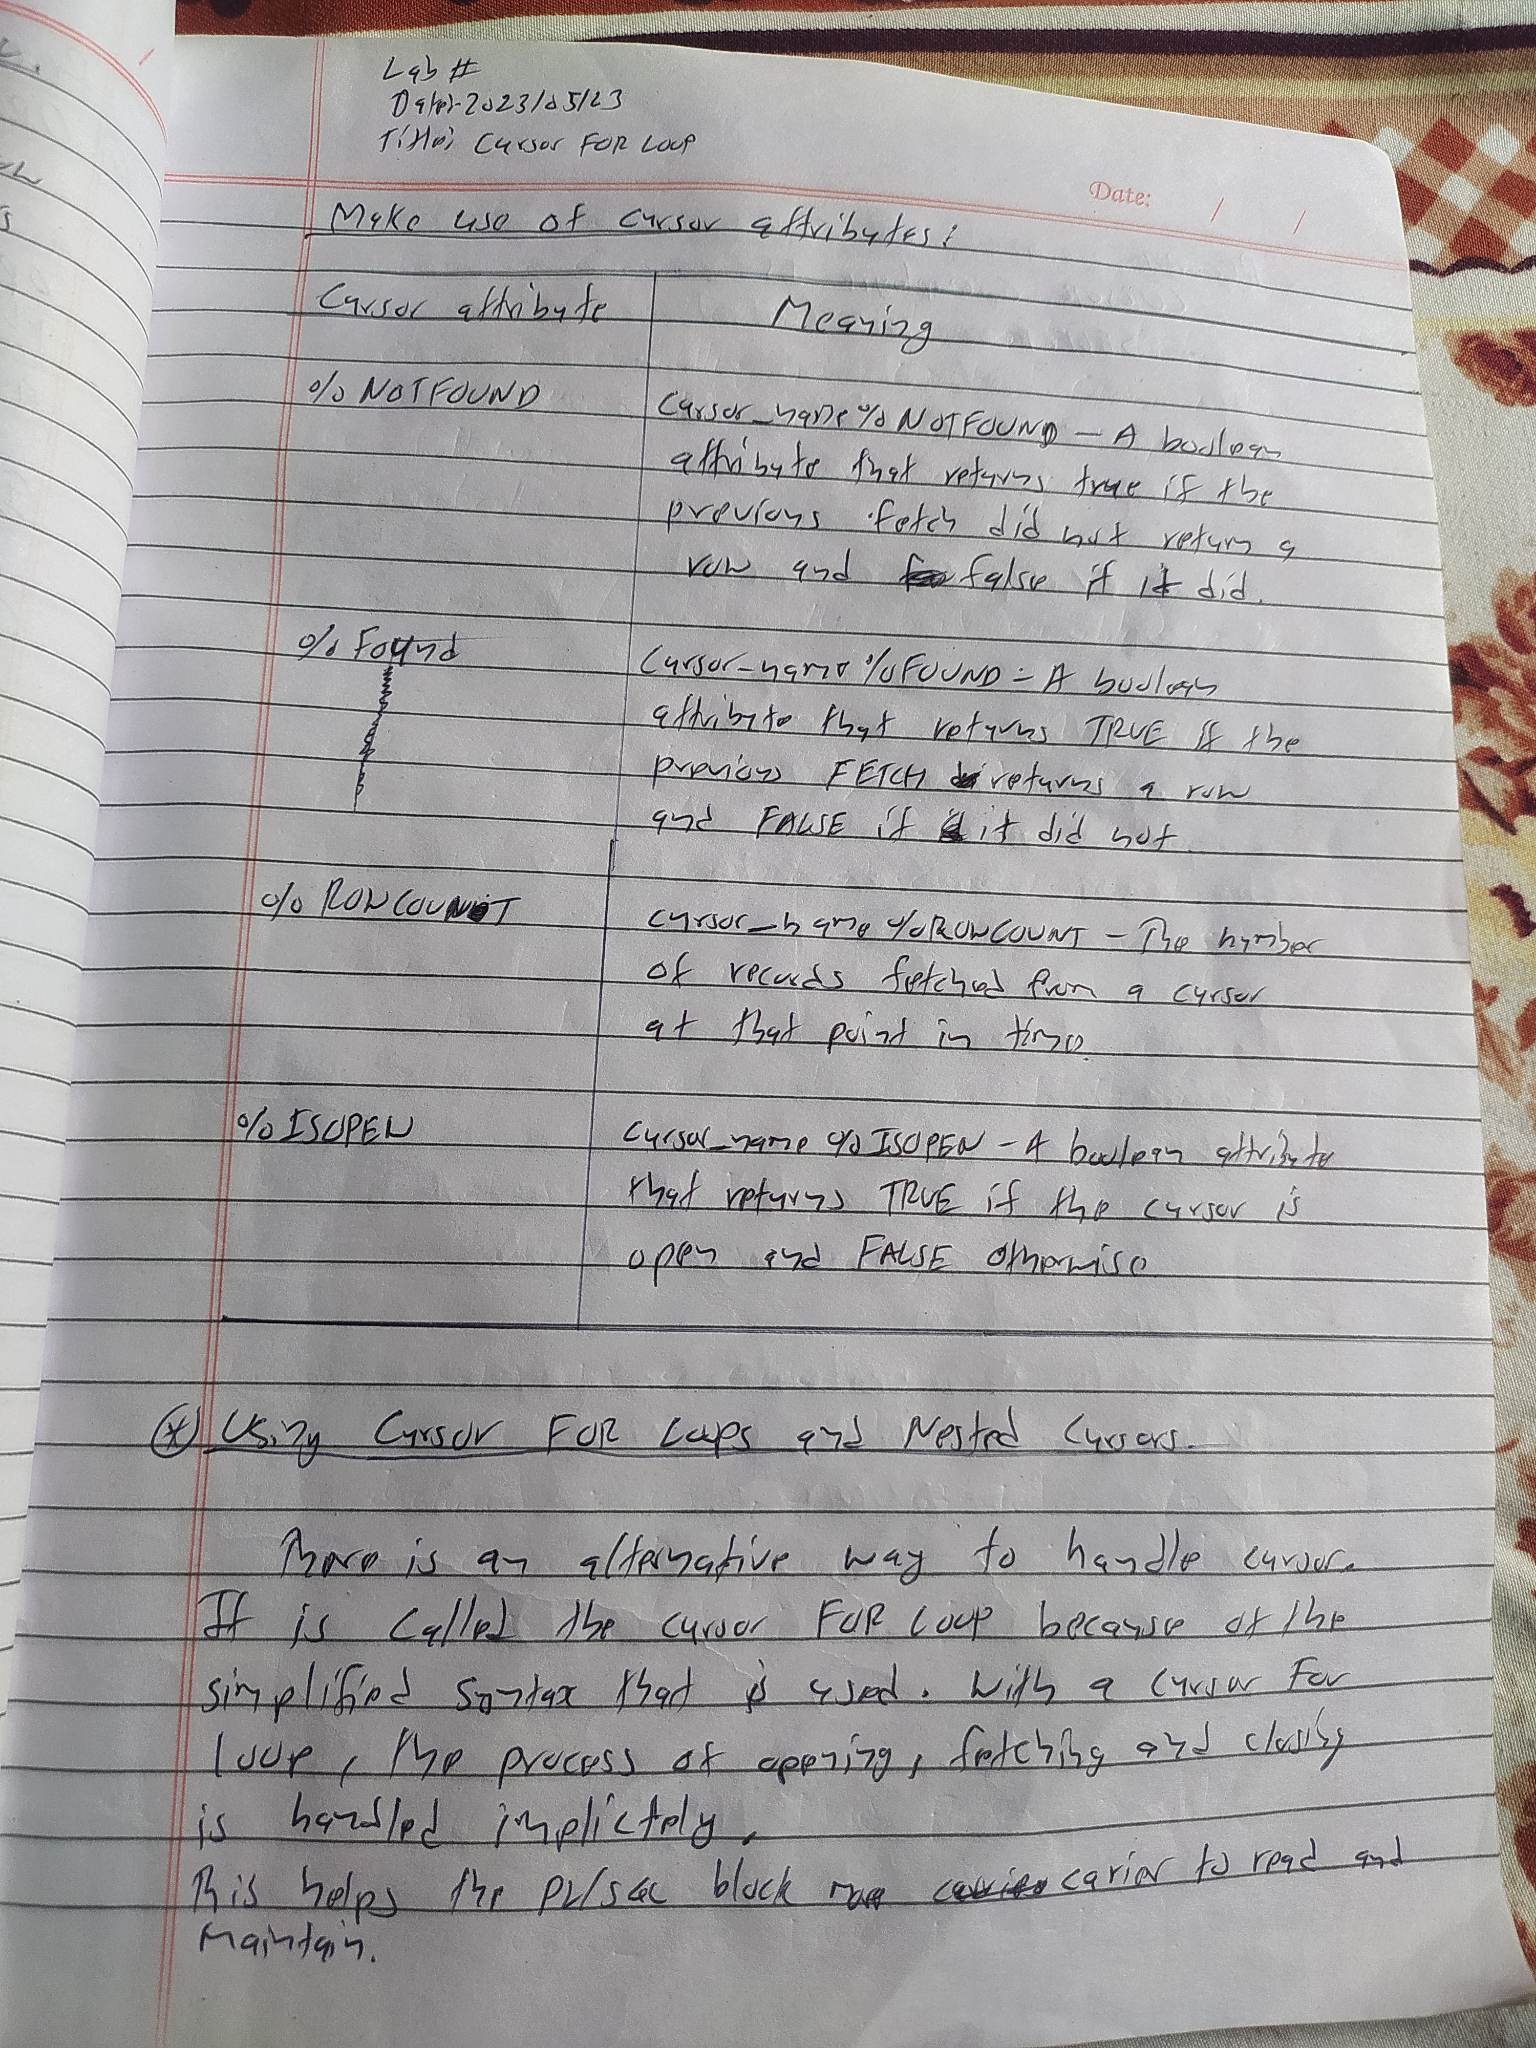 Lab #
Date:-2023/05/23
Title: Cursor FOR LOOP
Date: / /
Make use of cursor attributes:
Cursor attribute Meaning
% NOTFOUND
Cursor_name % NOTFOUND – A boolean
attribute that returns true if the
previous fetch did not return a
row and false if it did.
% Found
Cursor_name % FOUND – A boolean
attribute that returns TRUE if the
previous FETCH returns a row
and FALSE if it did not.
% ROWCOUNT
cursor_name % ROWCOUNT – The number
of records fetched from a cursor
at that point in time.
% ISOPEN
cursor_name % ISOPEN – A boolean attribute
that returns TRUE if the cursor is
open and FALSE otherwise
* Using Cursor FOR Loops and Nested Cursors.
There is an alternative way to handle cursor.
It is called the cursor FOR LOOP because of the
simplified syntax that is used. With a cursor For
loop, the process of opening, fetching and closing
is handled implictely.
This helps the PL/SQL block carier to read and
maintain.